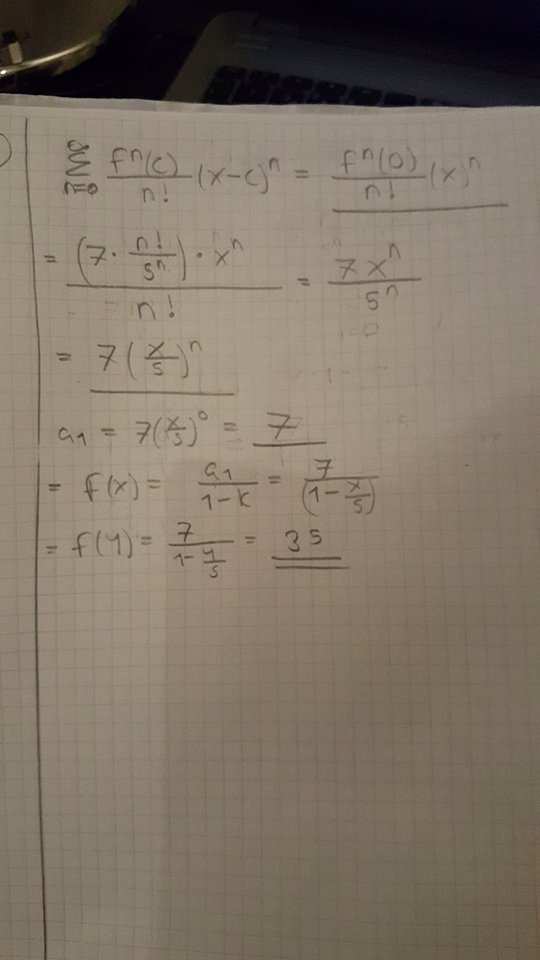 ∞∑n=0 fⁿ(c)/n! (x-c)ⁿ = fⁿ(0)/n! (x)ⁿ
= (7·n!/5ⁿ)·xⁿ/n! = 7xⁿ/5ⁿ
= 7(x/5)ⁿ
a₁ = 7(x/5)⁰ = 7
= f(x) = a₁/1-k = 7/(1-x/5)
= f(4) = 7/1-4/5 = 35